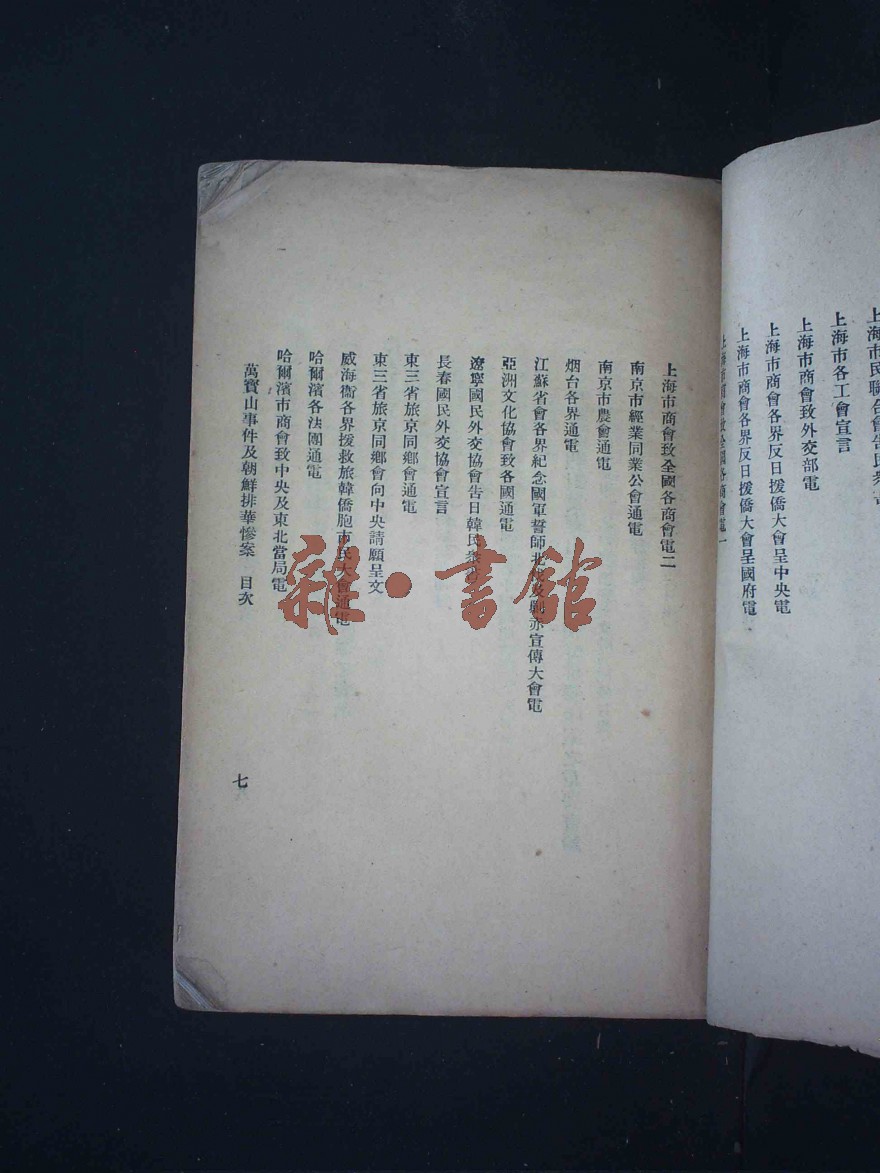 上海市民聯合會告民衆書
上海市各工會宣言
上海市商會致外交部電
上海市商會各界反日援僑大會呈中央電
上海市商會各界反日援僑大會呈國府電
上海市商會致全國各商會電一
上海市商會致全國各商會電二
南京市經業同業公會通電
南京市農會通電
烟台各界通電
江蘇省會各界紀念國軍誓師北伐及剿赤宣傳大會電
亞洲文化協會致各國通電
遼寧國民外交協會告日韓民衆
長春國民外交協會宣言
東三省旅京同鄉會通電
東三省旅京同鄉會向中央請願呈文
威海衞各界援救旅韓僑胞市民大會通電
哈爾濱各法團通電
哈爾濱市商會致中央及東北當局電
萬寶山事件及朝鮮排華慘案 目次
七
雜·書館